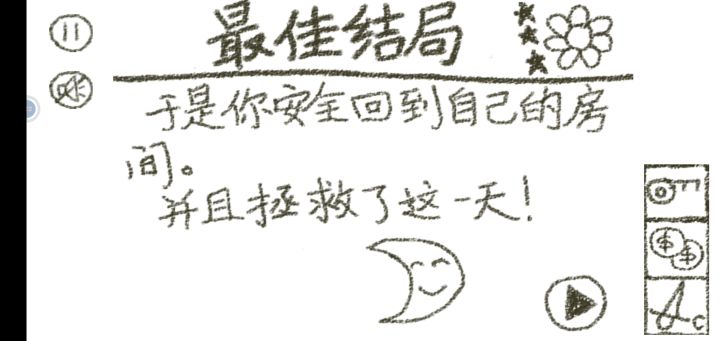 最佳结局
于是你安全回到自己的房
间。
并且拯救了这一天！